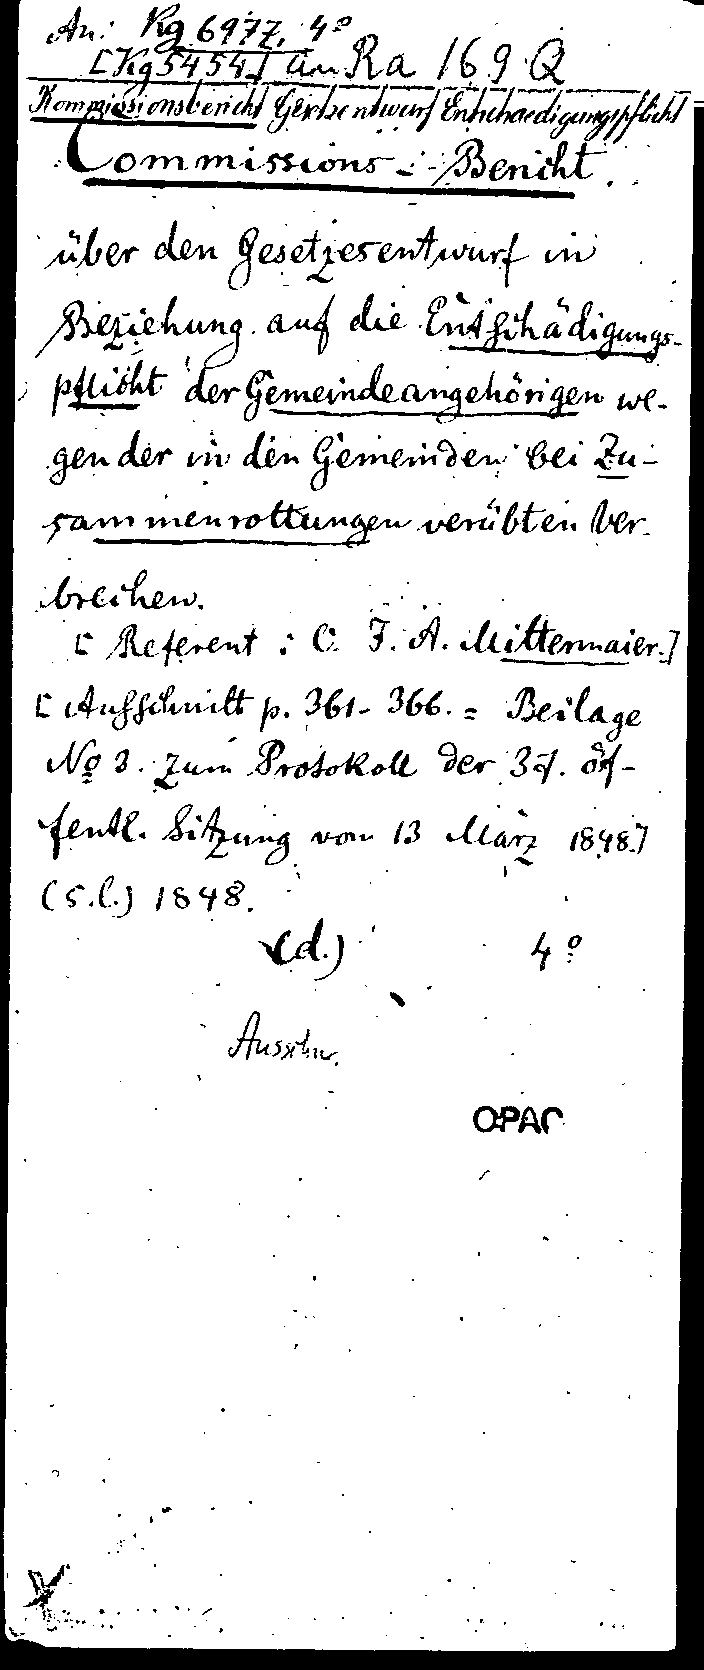 An: Kg 6977, 4º
[Kg 5454] an Ra 169 Q
Kommissionsbericht Gesetzentwurf Entschaedigungspflicht
Commissions-Bericht
über den Gesetzesentwurf in
Beziehung auf die Entschädigungs-
pflicht der Gemeindeangehörigen we-
gen der in den Gemeinden bei Zu-
sammenrottungen verübten Ver-
brechen.
[Referent: C. J. A. Mittermaier.]
[Ausschnitt p. 361-366. = Beilage
Nº 3. zum Protokoll der 37. öf-
fentl. Sitzung vom 13 März 1848.]
(s.l.) 1848.
(d.) 4º
Ausschn.
OPAC